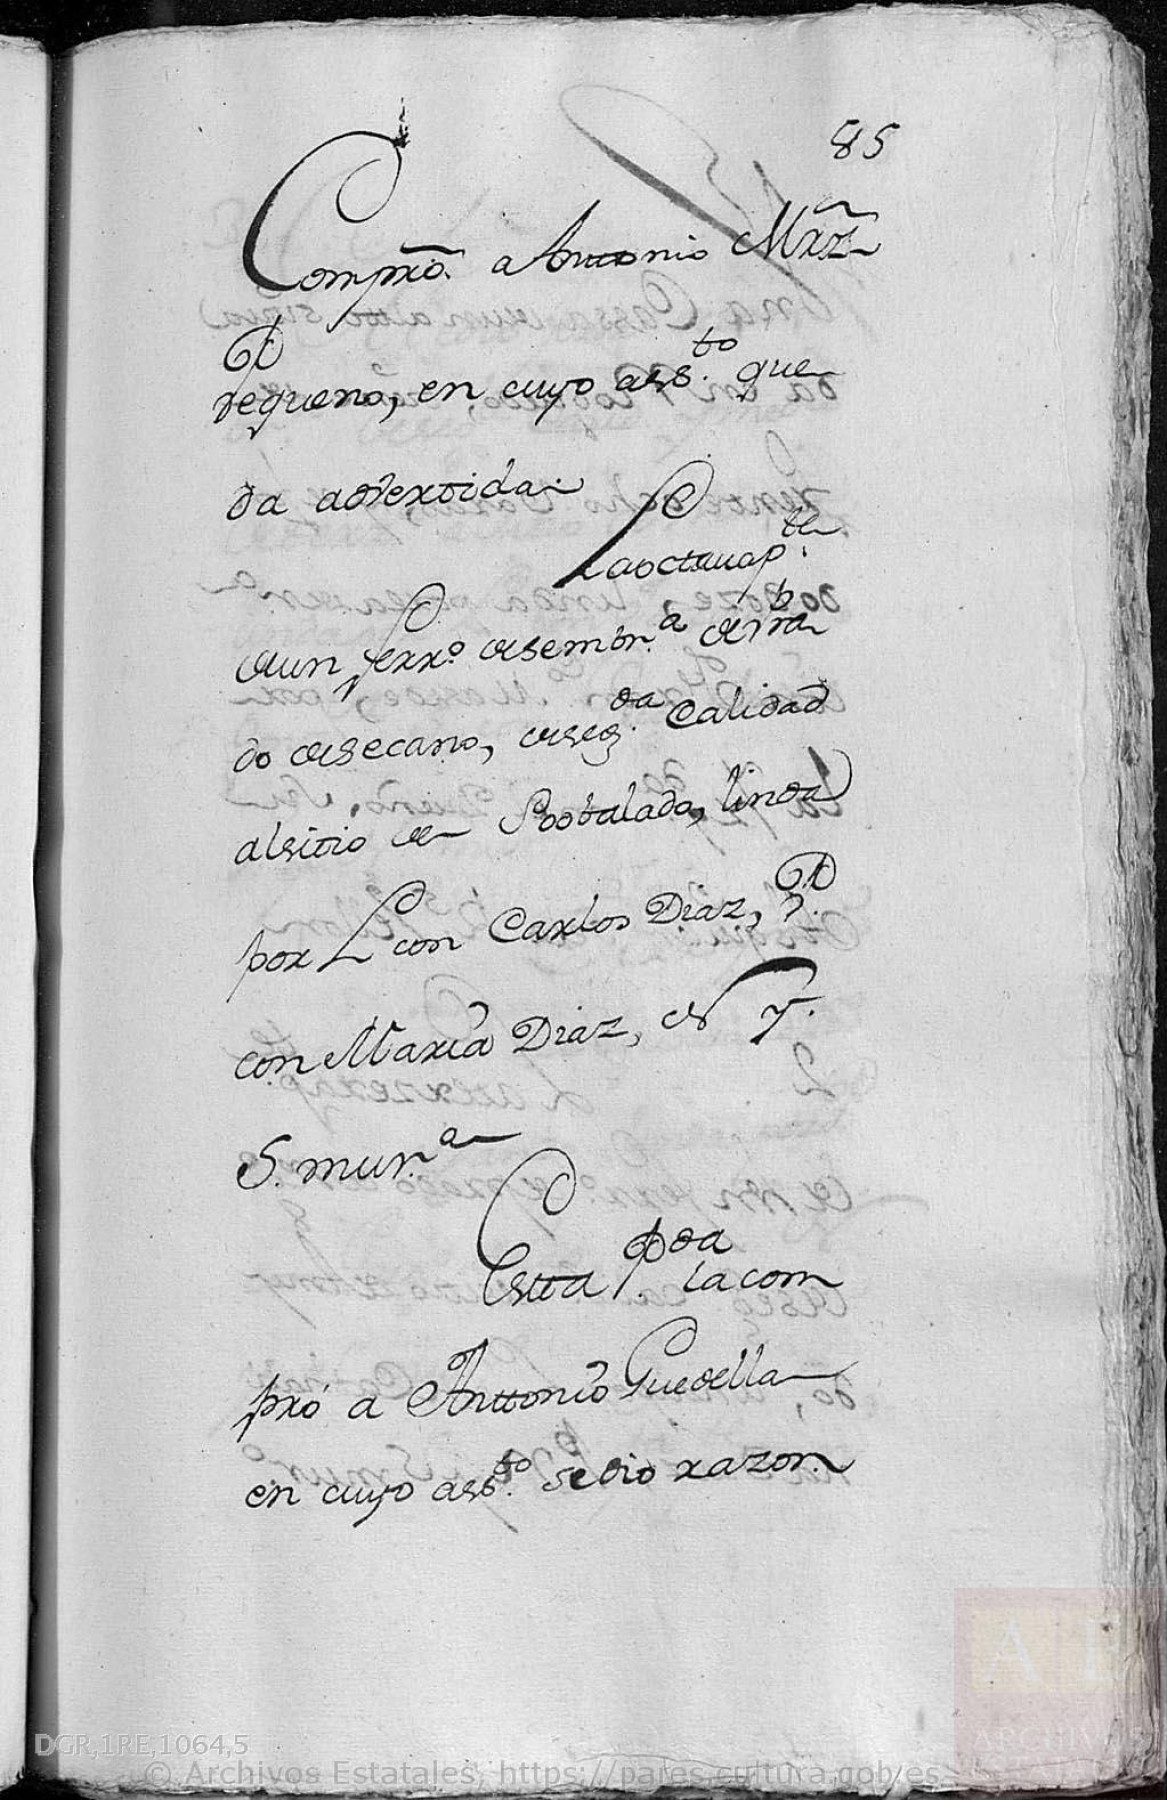 85
Compró a Antonio Mrz
Pequeno, en cuyo ass.to que
da advertida.
La octaua p.te
de un ferr.o de sembr.a de bra
do de secano, de seg.da Calidad
al sitio de Sobtalado, linda
por L con Carlos Diaz, P.
con Maria Diaz, N y.
S. mur.a
Estta p.da la com
pró a Anttonio Guedella
en cuyo ass.to se dio razon.
DGR,1RE,1064,5
© Archivos Estatales, https://pares.cultura.gob.es